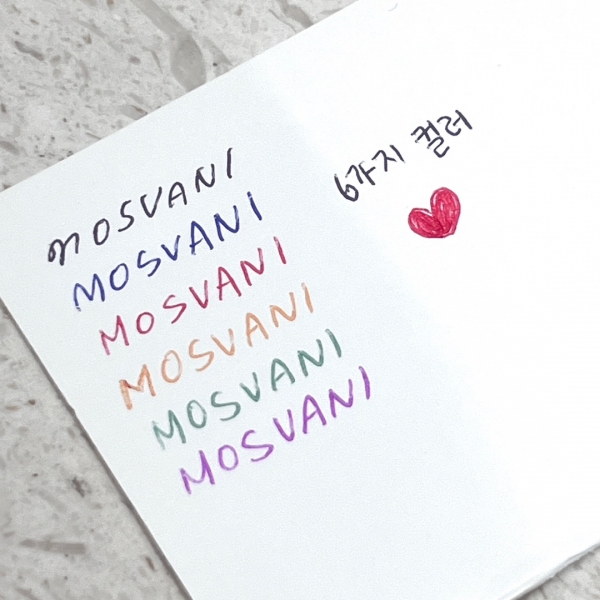 MOSVANI
MOSVANI
MOSVANI
MOSVANI
MOSVANI
MOSVANI
6가지 컬러